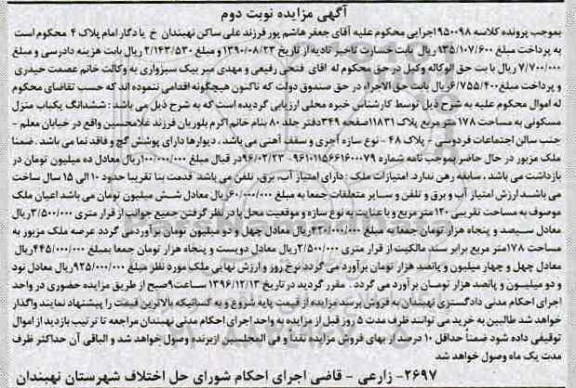 آگهی مزایده نوبت دوم
بموجب پرونده کلاسه ۹۵۰۰۹۸اجرایی محکوم علیه آقای جعفر هاشم پور فرزند علی ساکن نهبندان خ یادگار امام پلاک ۴ محکوم است
به پرداخت مبلغ ۹۳۵/۱۰۷/۶۰۰ ریال بابت خسارت تاخیر تادیه از تاریخ ۱۳۹۰/۰۸/۲۳ و مبلغ ۲/۱۴۳/۵۳۰ ریال بابت هزینه دادرسی و مبلغ
۷/۷۰۰/۰۰۰ریال با بت حق الوکاله وکیل در حق محکوم له اقای فتحی رفیعی و مهدی میر بیک سبزواری به وکالت خانم عصمت حیدری
و پرداخت مبلغ۶/۷۵۵/۴۰۰ریال بابت حق الاجراء در حق صندوق دولت که تاکنون هیچگونه اقدامی ننموده اند که حسب تقاضای محکوم
له اموال محکوم علیه به شرح ذیل توسط کارشناس خبره محلی ارزیابی گردیده است که به شرح ذیل می باشد : ششدانگ یکباب منزل
مسکونی به مساحت ۱۷۸ متر مربع پلاک ۱۱۸۳۱صفحه ۳۴۹دفتر جلد ۸۰ بنام خانم اکرم بلوریان فرزند غلامحسین واقع در خیابان معلم -
جنب سالن اجتماعات فردوسی - پلاک ۴۸ - نوع سازه آجری و سقف آهنی می باشد . دیوارها دارای پوشش گچ و فاقد نما می باشد . ضمنا
ملک مزبور در حال حاضر بموجب نامه شماره ۹۶۱۰۱۱۵۶۶۱۶۰۰۰۷۹-۹۶/۰۳/۲۳ در قبال مبلغ ۱۰۰/۰۰۰/۰۰۰ریال معادل ده میلیون تومان در
بازداشت می باشد . سابقه رهن ندارد. امتیازات ملک : دارای امتیاز آب، برق، تلفن می باشد قدمت بنا تقریبا حدود ۱۰ الی ۱۵ سال ساخت
می باشد ارزش امتیاز آب و برق و تلفن و سایر متعلقات جمعا به مبلغ ۶۰/۰۰۰/۰۰۰ریال معادل شش میلیون تومان می باشد اعیان ملک
موصوف به مساحت تقریبی ۱۲۰ متر مربع و با عنایت به نوع سازه و موقعیت محل با در نظر گرفتن جمیع جوانب از قرار متری ۳/۵۰۰/۰۰۰ریال
معادل سیصد و پنجاه هزار تومان جمعا به مبلغ ۴۲۰/۰۰۰/۰۰۰ریال معادل چهل و دو میلیون تومان برآورد می گردد عرصه ملک مزبور به
مساحت ۱۷۸متر مربع برابر سند مالکیت از قرار متری ۲/۵۰۰/۰۰۰ ریال معادل دویست و پنجاه هزار تومان جمعا بمبلغ ۴۴۵/۰۰۰/۰۰۰ریال
معادل چهل و چهار میلیون و پانصد هزار تومان برآورد می گردد نرخ روز و ارزش نهایی ملک مورد نظر مبلغ ۹۲۵/۰۰۰/۰۰۰ریال معادل نود
و دو میلیون و پانصد هزار تومان بر آورد می گردد . مقرر گردید در تاریخ ۱۳۹۶/۱۲/۱۳ ساعت ۹صبح از طریق مزایده حضوری در واحد
اجرای احکام مدنی دادگستری نهبندان به فروش برسد مزایده از قیمت پایه شروع و به کسانیکه بالاترین قیمت را پیشنهاد نمایند واگذار
خواهد شد طالبین به خرید می توانند ظرف مدت ۵ روز قبل از مزایده به واحد اجرای احکام مدنی نهبندان مراجعه تا ترتیب بازدید از اموال
توقیفی داده شود ضمناً حداقل ۱۰ درصد از بهای فروش مزایده نقداً و فی المجلس ازبرنده وصول خواهد شد و الباقی آن حداکثر ظرف
مدت یک ماه وصول خواهد شد
۲۶۹۷- زارعی - قاضی اجرای احکام شورای حل اختلاف شهرستان نهبندان